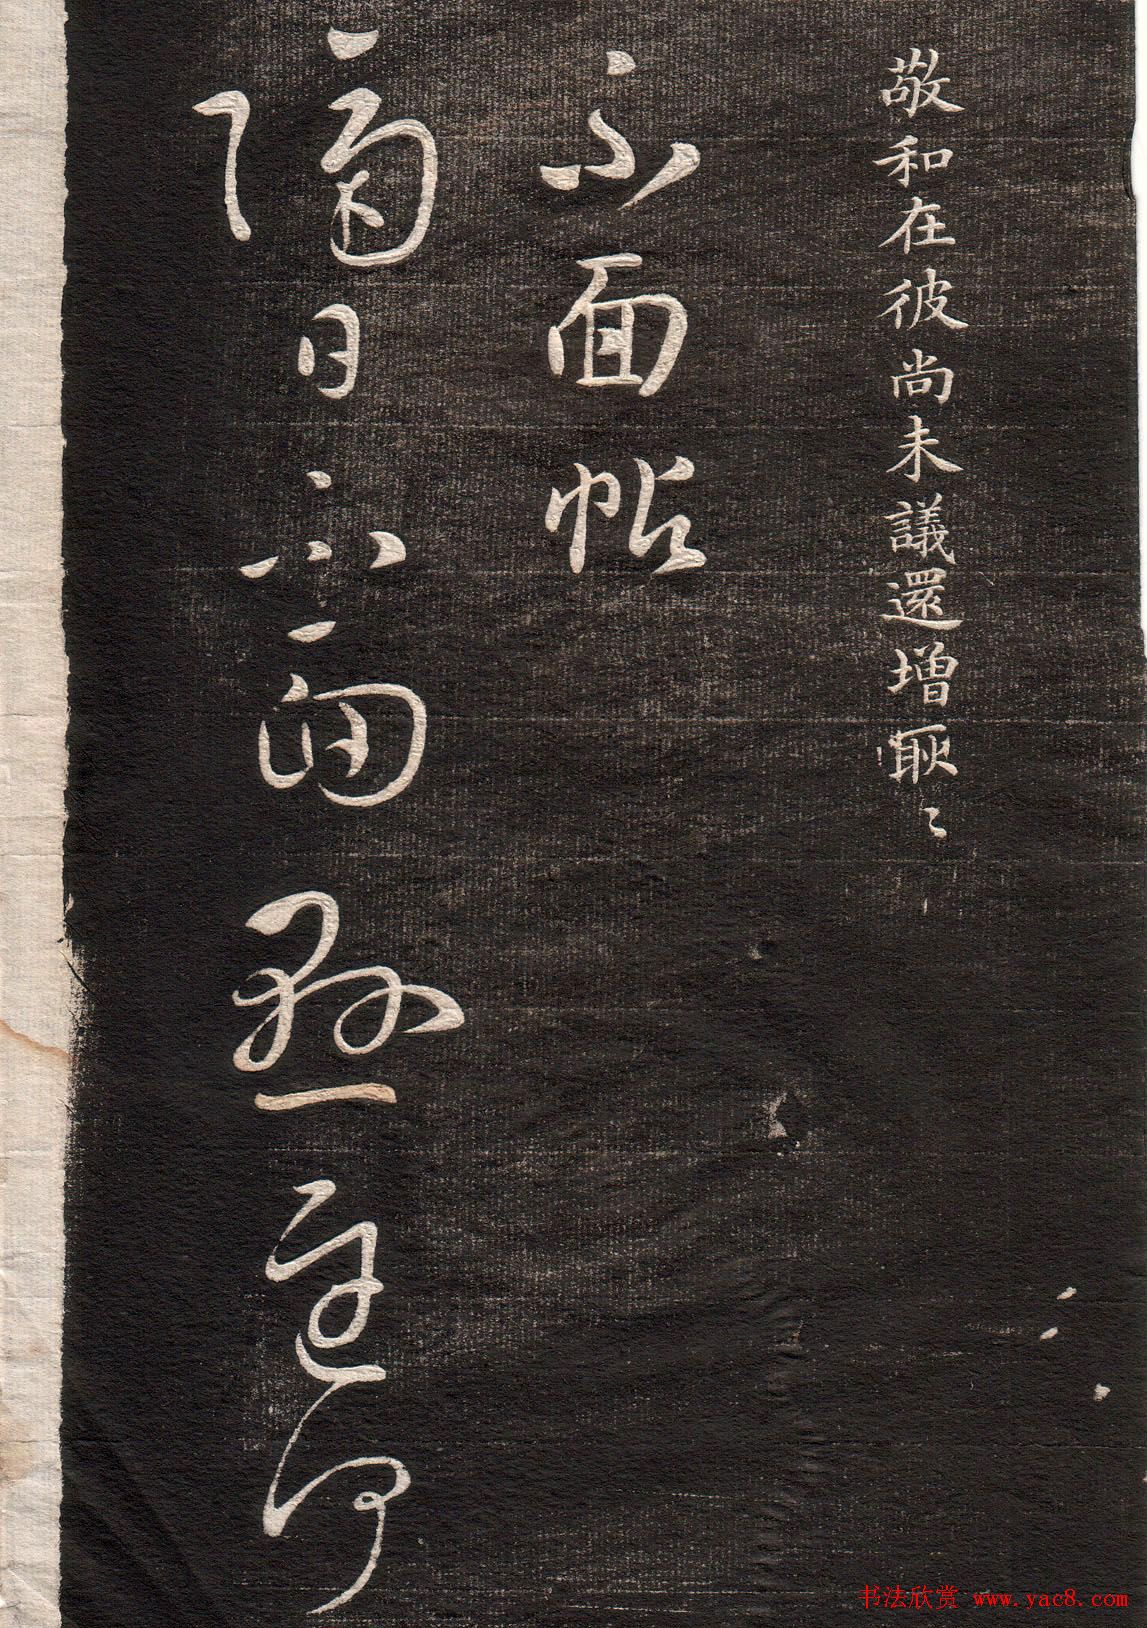 敬和在彼尚未議還增耿〻
不面帖
隔日不面懸遲何
书法欣赏 www.yac8.com